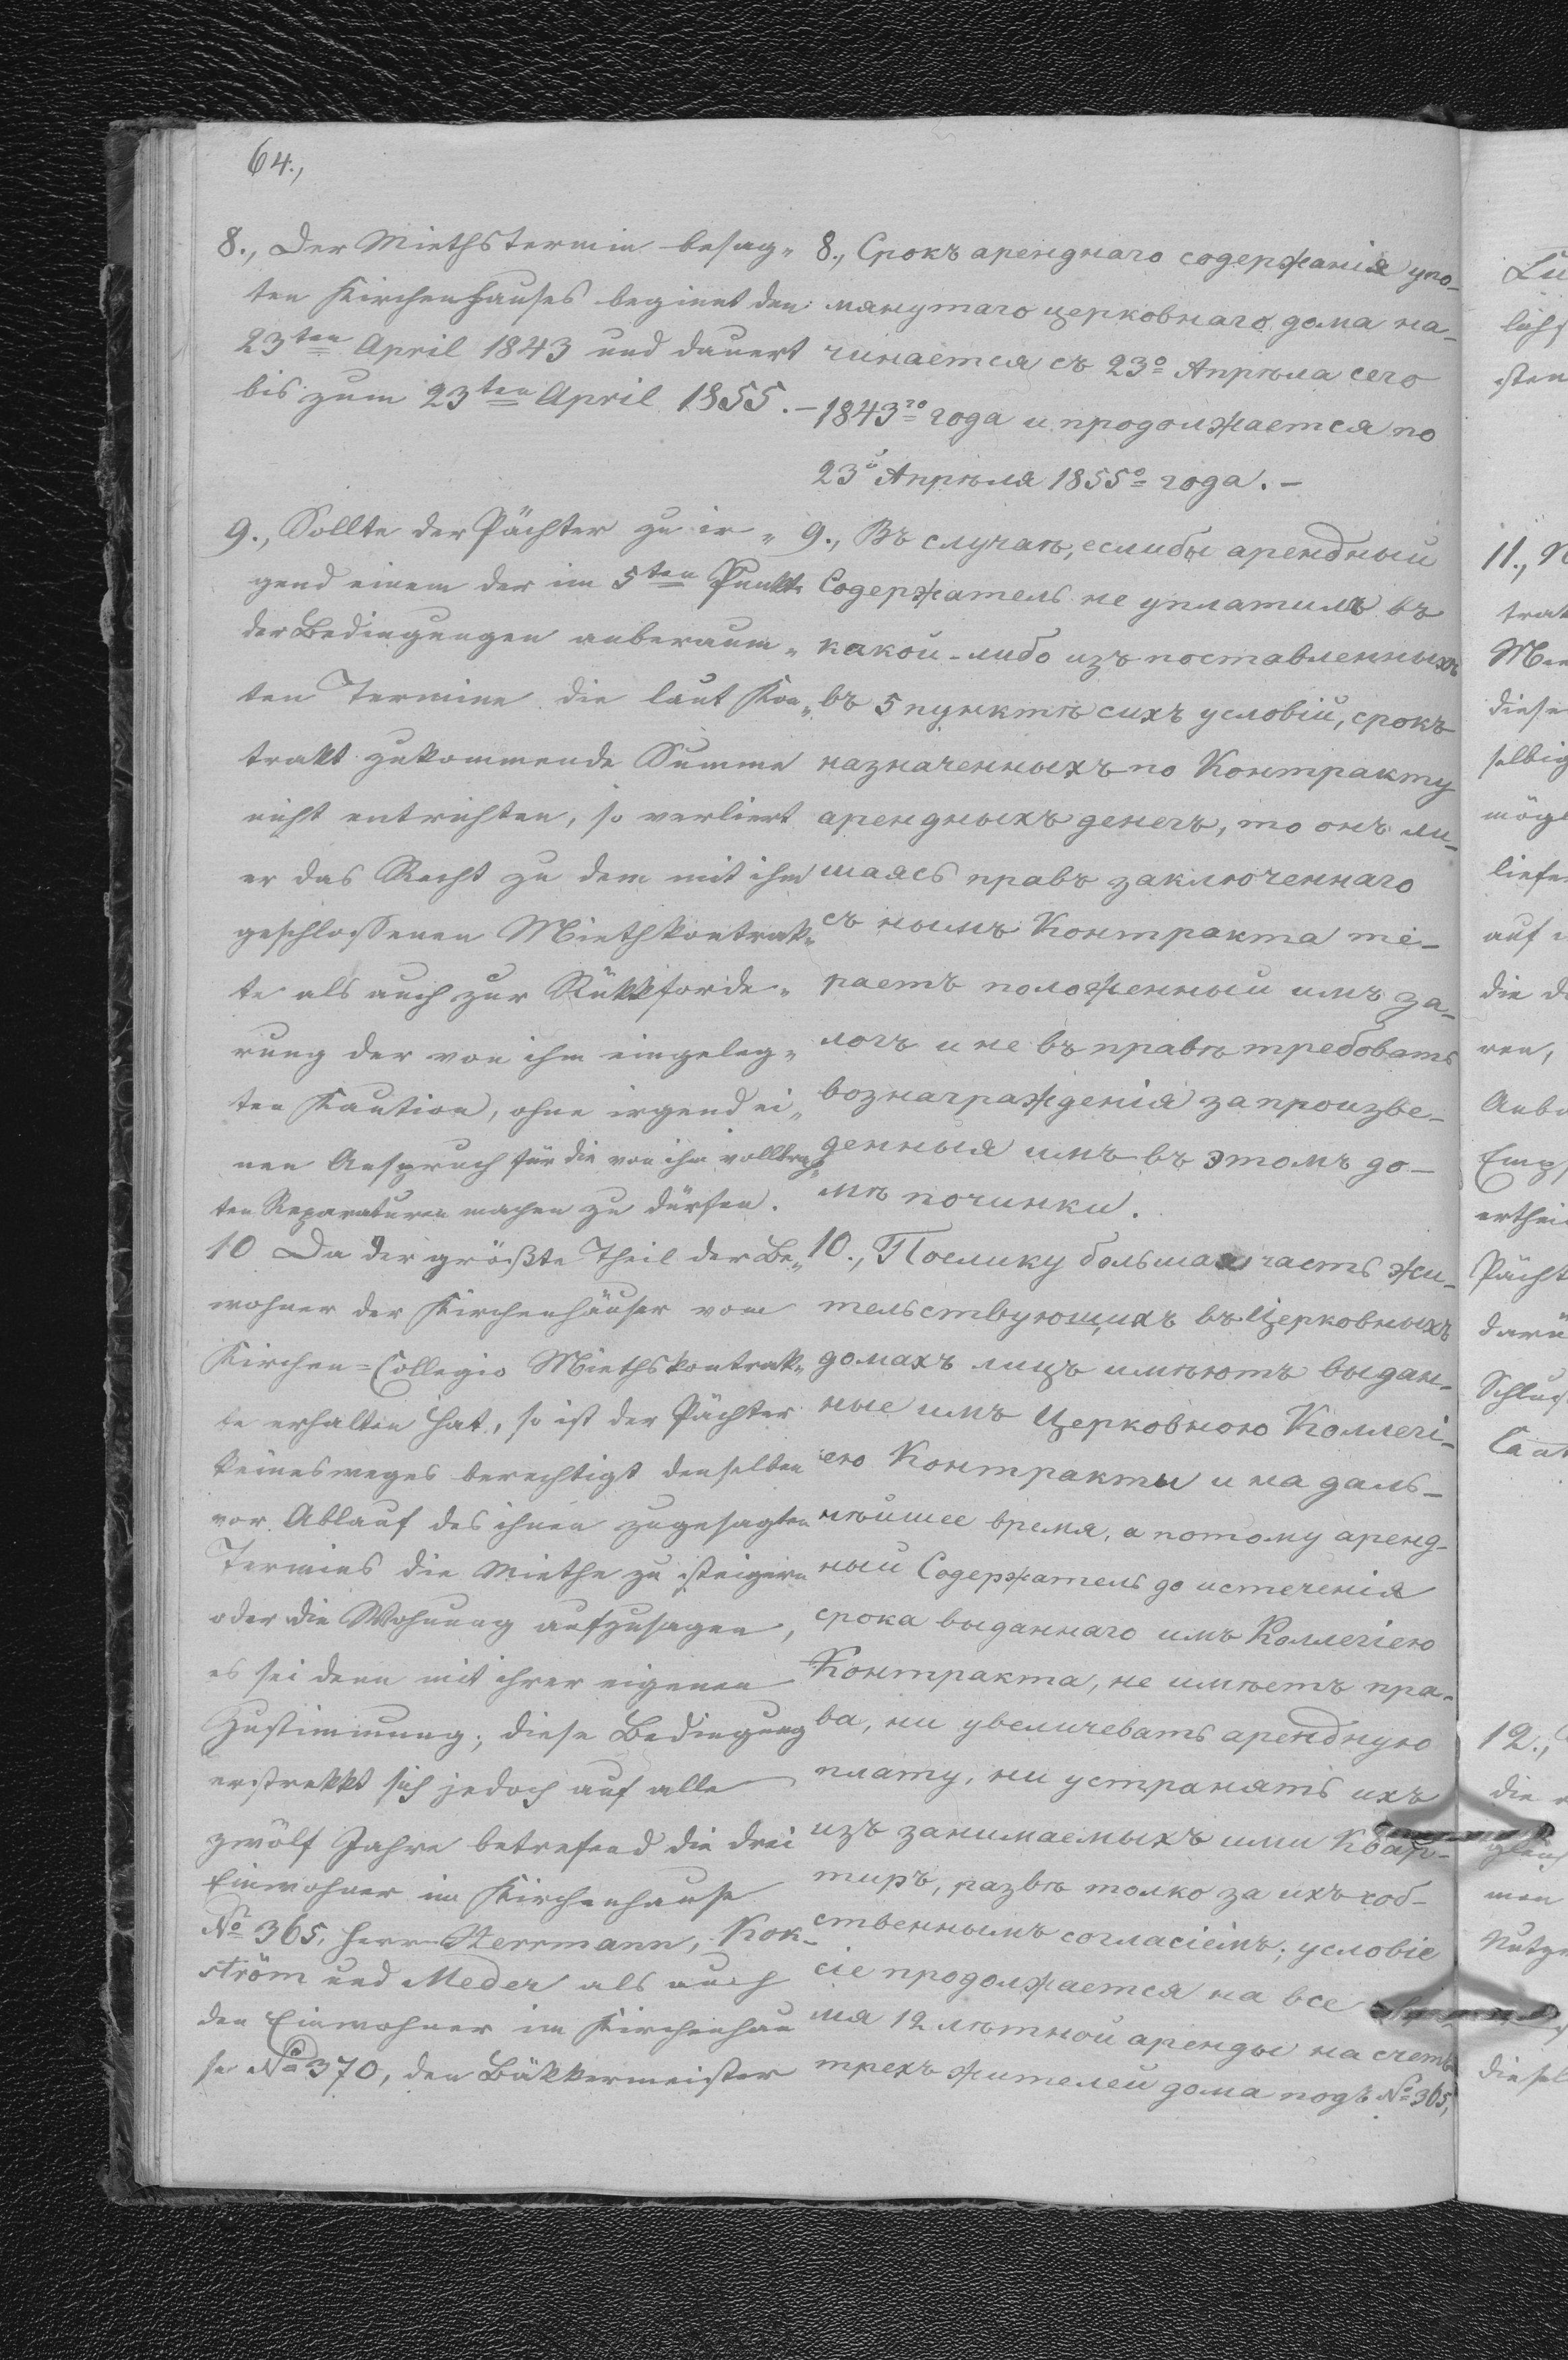 64.,
8., Der Miethstermin besag„
ten Kirchenhauses beginnt den
23ten April 1843 und dauert
bis zum 23ten April 1855. –
9., Sollte der Pächter zu ir„
gend einem der im 5ten Punkte
der Bedingungen anberaum„
ten Termine die laut Kon„
trakt zukommende Summe
nicht entrichten, so verliert
er das Recht zu dem mit ihm
geschlossenen Miethkontrak„
te als auch zur Rükkforde„
rung der von ihm eingeleg„
ten Kaution, ohne irgend ei„
nen Anspruch für die von ihm vollbrag„
ten Reparaturen machen zu dürfen.
10 Da der größte Theil der Be„
wohner der Kirchenhäuser vom
Kirchen=Collegio Miethskontrak„
te erhalten hat, so ist der Pächter
keinesweges berechtigt denselben
vor Ablauf des ihnen zugesagten
Termins die Miethe zu steigern
oder die Wohnung aufzusagen,
es sei denn mit ihrer eigenen
Zustimmung; diese Bedingung
erstrekkt sich jedoch auf alle
zwölf Jahre betrefend die drei
Einwohner im Kirchenhause
No 365, Herr Herrmann, Kok„
ström und Meder als auch
den Einwohner im Kirchenhau
se No 370, den Bäkkermeister
8., Срокъ аренднаго содержанія упо–
мянутаго церковнаго дома на–
чинается съ 23о Апрѣла сего
1843го года и продолжается по
23й Апрѣля 1855о года. –
9., Въ случаѣ, еслибы арендный
Содержатель не уплатилъ въ
какой-либо изъ поставленныхъ
въ 5 пунктѣ сихъ условій, срокъ
назначенныхъ по Контракту
арендныхъ денегъ, то онъ ли–
шаясь правъ заключеннаго
съ нымъ Контракта те–
раетъ положенный имъ за–
логъ и не въ правѣ требовать
вознагражденія за произве–
денныя имъ въ этомъ до–
мѣ починки.
10., Поелику большая часть жи–
тельствующихъ въ Церковныхъ
домахъ лицъ имѣютъ выдан–
ные имъ Церковною Коллегі–
ею Контракты и на даль–
нѣйшее время, а потому аренд–
ный Содержатель до истеченія
срока выданнаго имъ Коллегіею
Контракта, не имѣетъ пра–
ва, ни увеличевать арендную
плату, ни устранять ихъ
изъ занимаемыхъ ими Квар–
тиръ, развѣ толко за ихъ соб–
ственнымъ согласіемъ; условіе
сіе продолжается на все
мя 12 лѣтной аренды на счетъ
трехъ жителей дома подъ No 365,
11.,
12.,